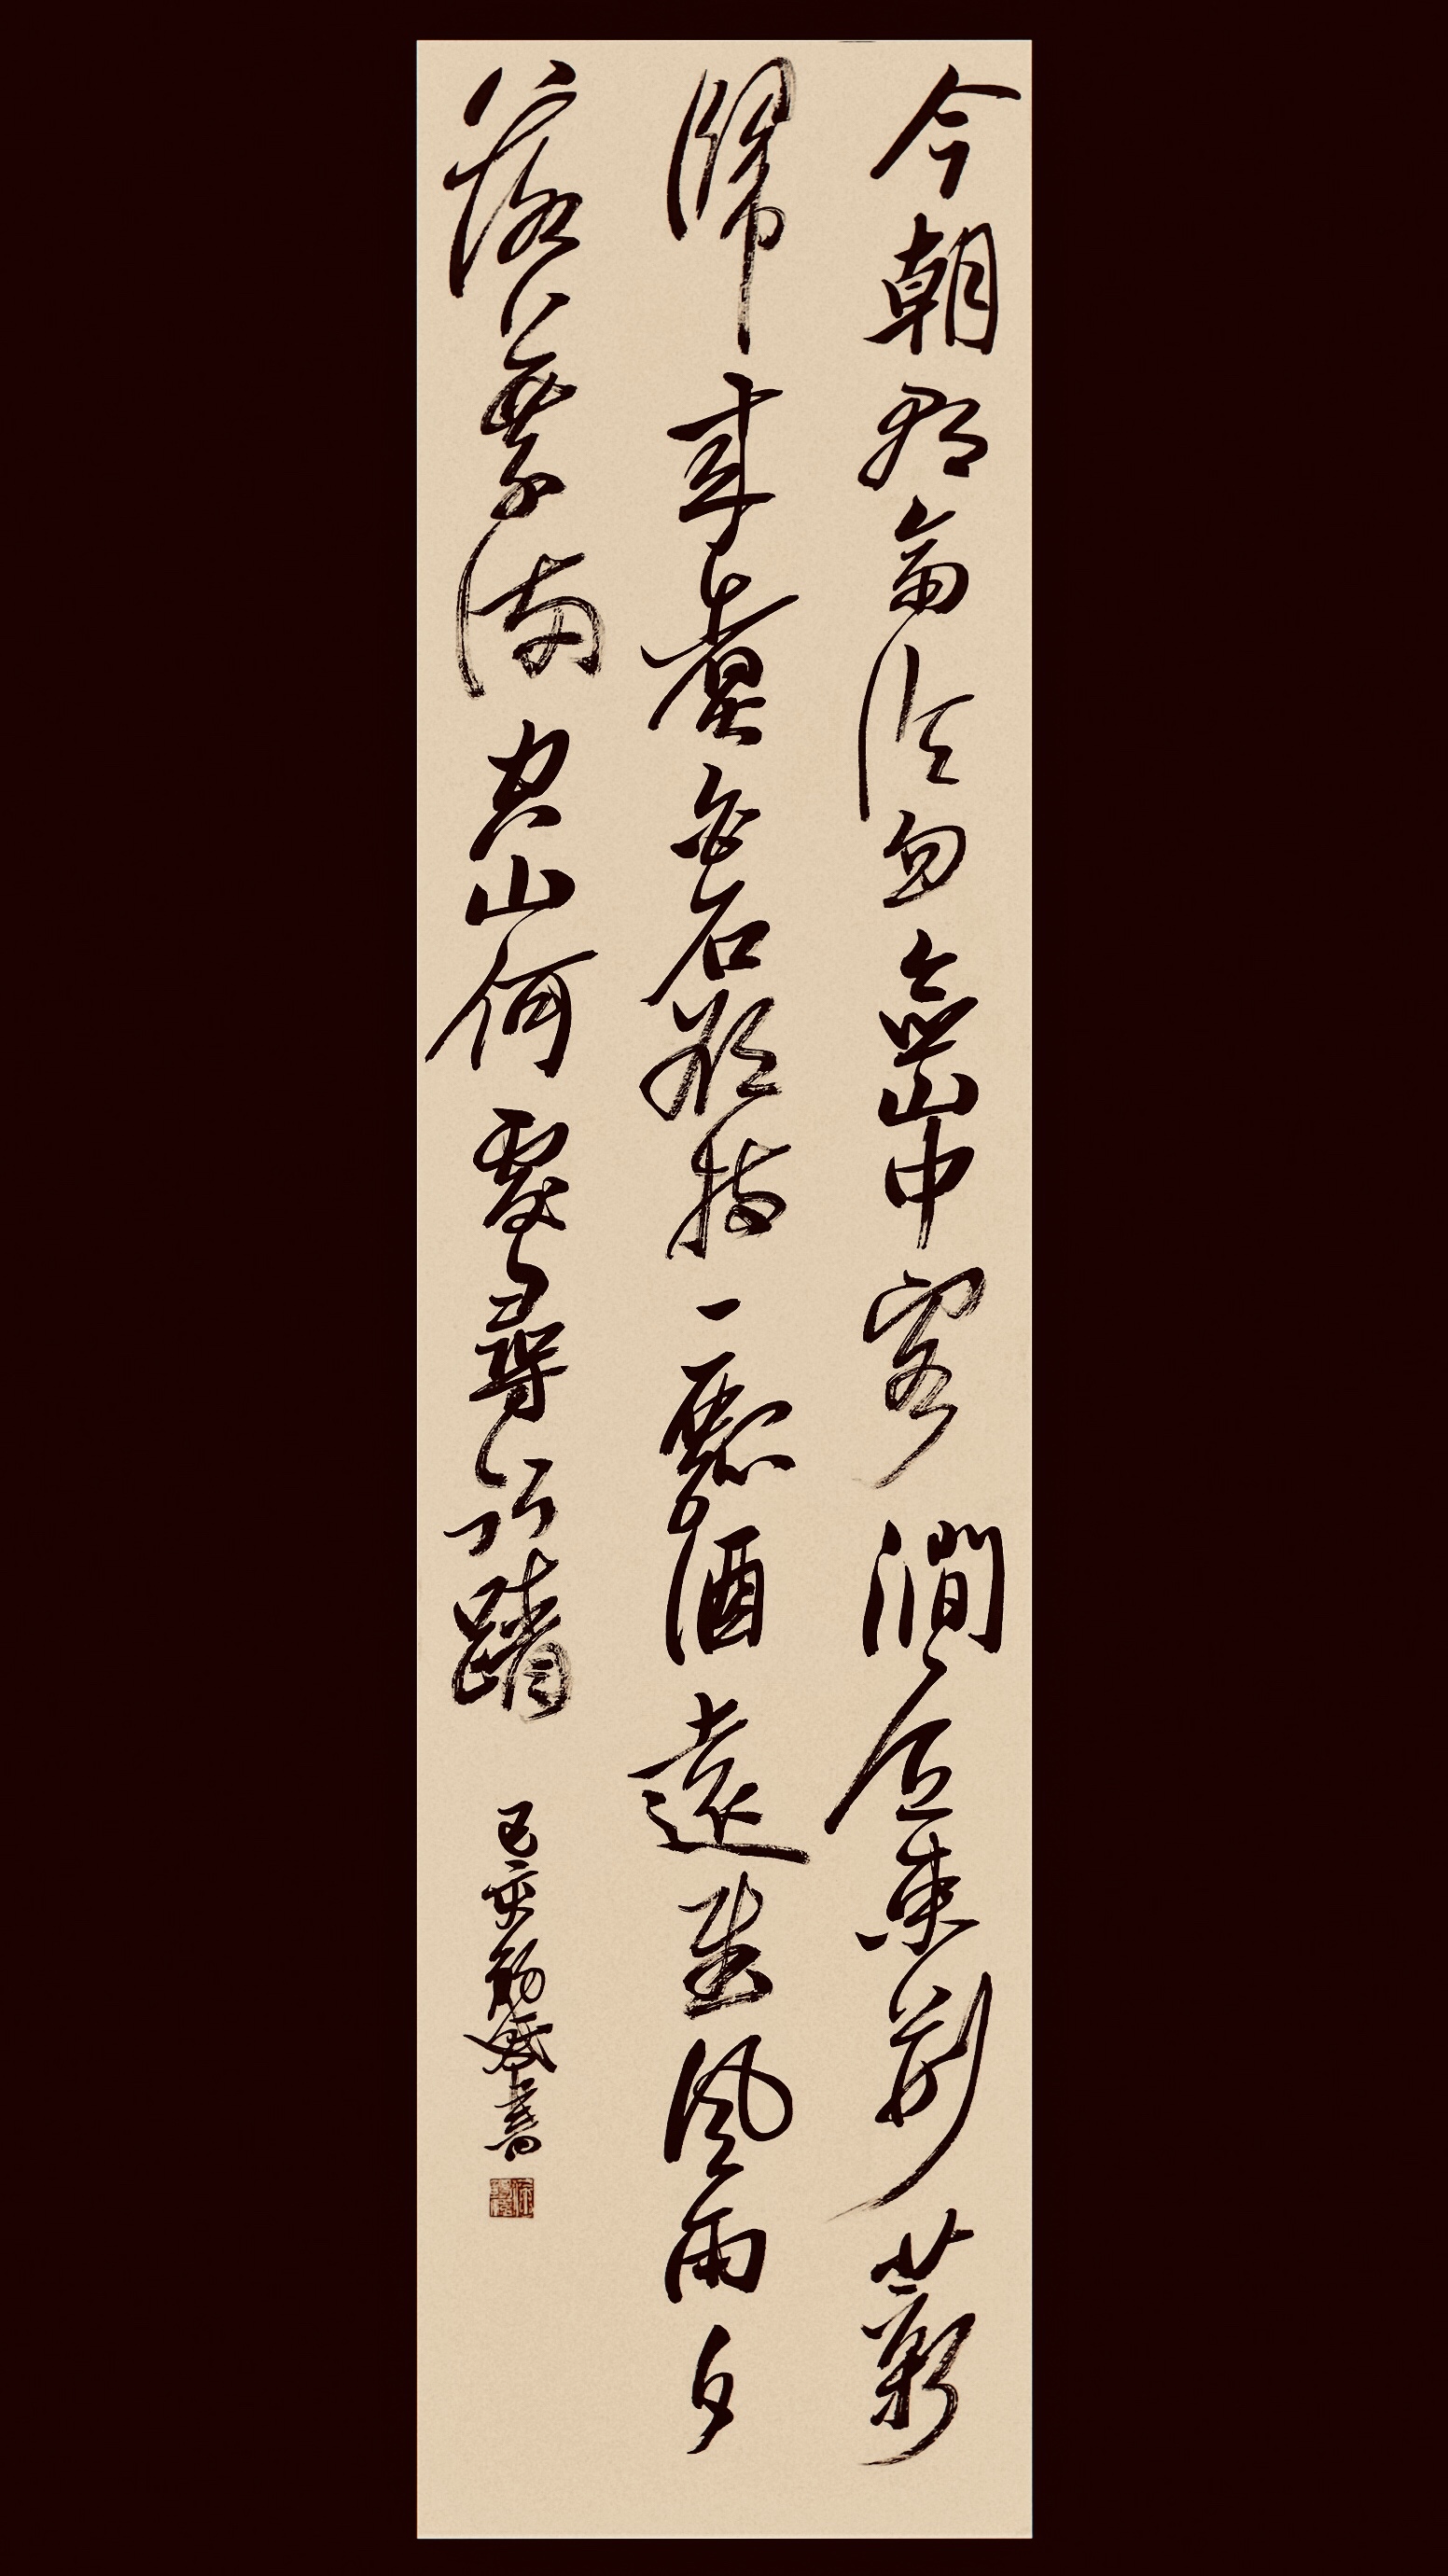 今朝郡齋冷忽念山中客澗底束荊薪
歸來煮白石欲持一瓢酒遠慰風雨夕
落葉滿空山何處尋行蹟
己亥 書